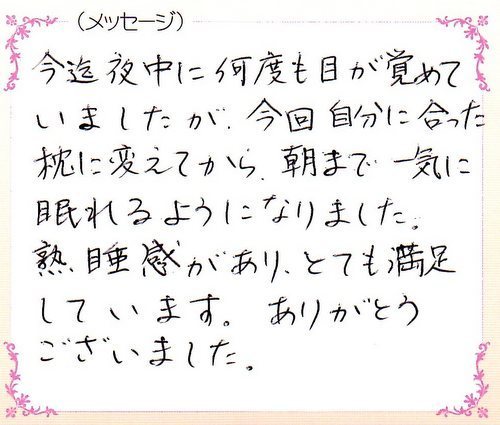 （メッセージ）
今迄夜中に何度も目が覚めて
いましたが、今回自分に合った
枕に変えてから、朝まで一気に
眠れるようになりました。
熟睡感があり、とても満足
しています。ありがとう
ございました。